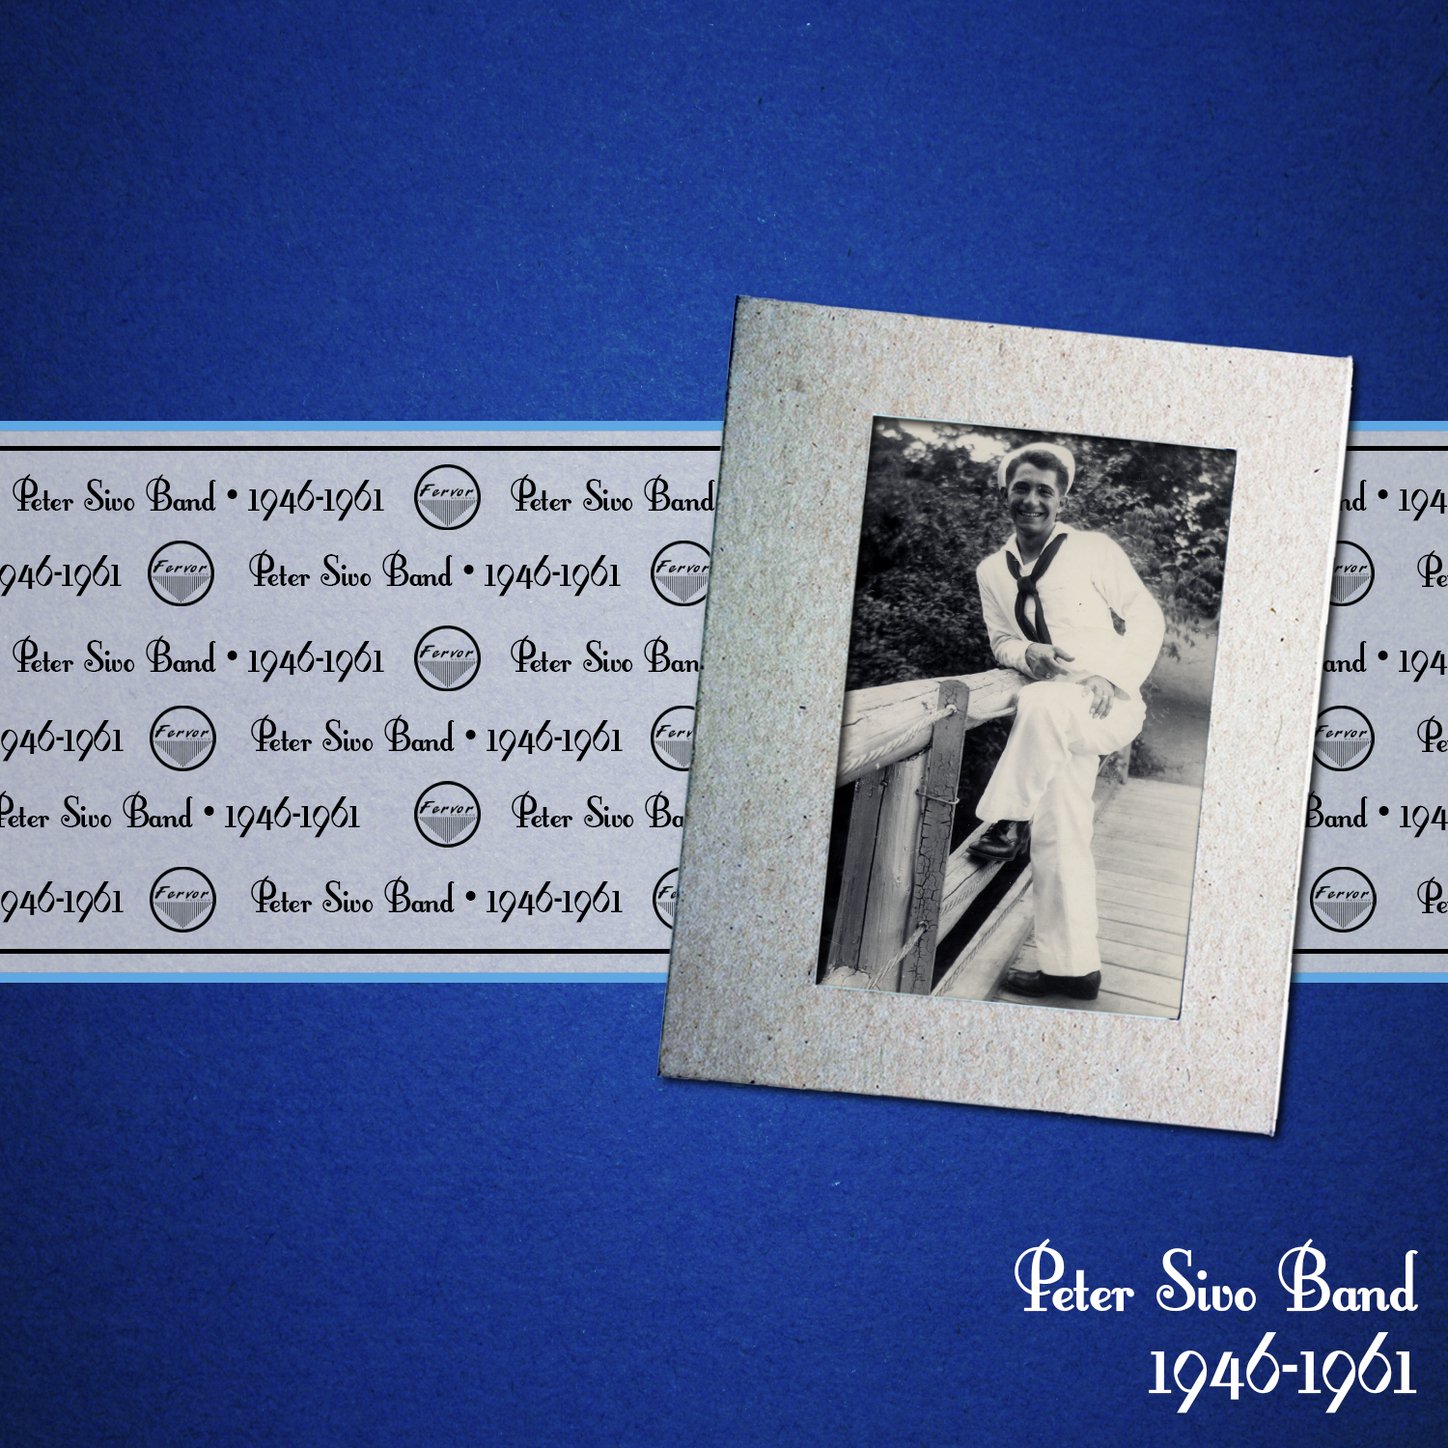 Peter Sivo Band • 1946-1961 Fervor Peter Sivo Band nd • 194
946-1961 Fervor Peter Sivo Band • 1946-1961 Fervor rvor Pe
Peter Sivo Band • 1946-1961 Fervor Peter Sivo Ban and • 194
946-1961 Fervor Peter Sivo Band • 1946-1961 Ferv Fervor Pe
Peter Sivo Band • 1946-1961 Fervor Peter Sivo Ba Band • 194
946-1961 Fervor Peter Sivo Band • 1946-1961 Fe Fervor Pe
Peter Sivo Band
1946-1961